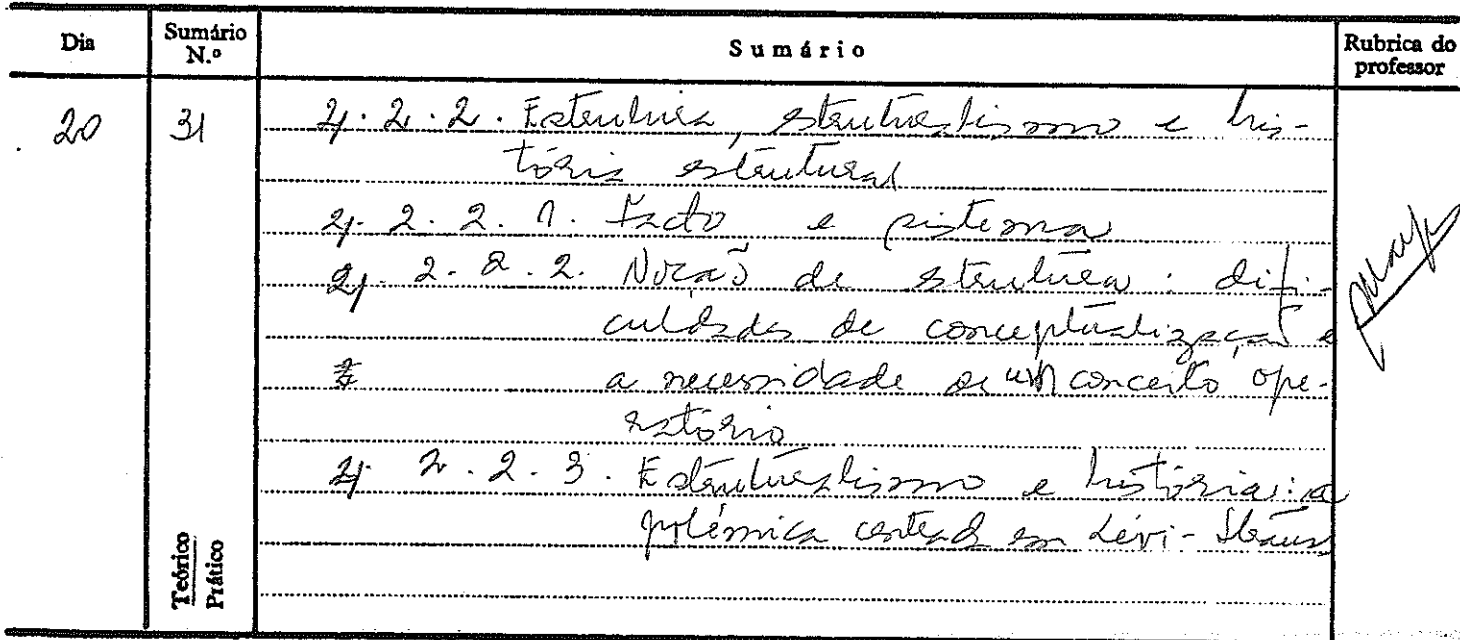 Dia Sumário N.º Sumário Rubrica do professor
20 31 4.2.2. Estrutura, estruturalismo e his-
tória estrutural
4.2.2.1. Facto e sistema
4.2.2.2. Noção de estrutura: difi-
culdades de conceptualização e
a necessidade de um conceito ope-
ratório
4.2.2.3. Estruturalismo e história: a
polémica centrada em Lévi-Strauss
Teórico
Prático